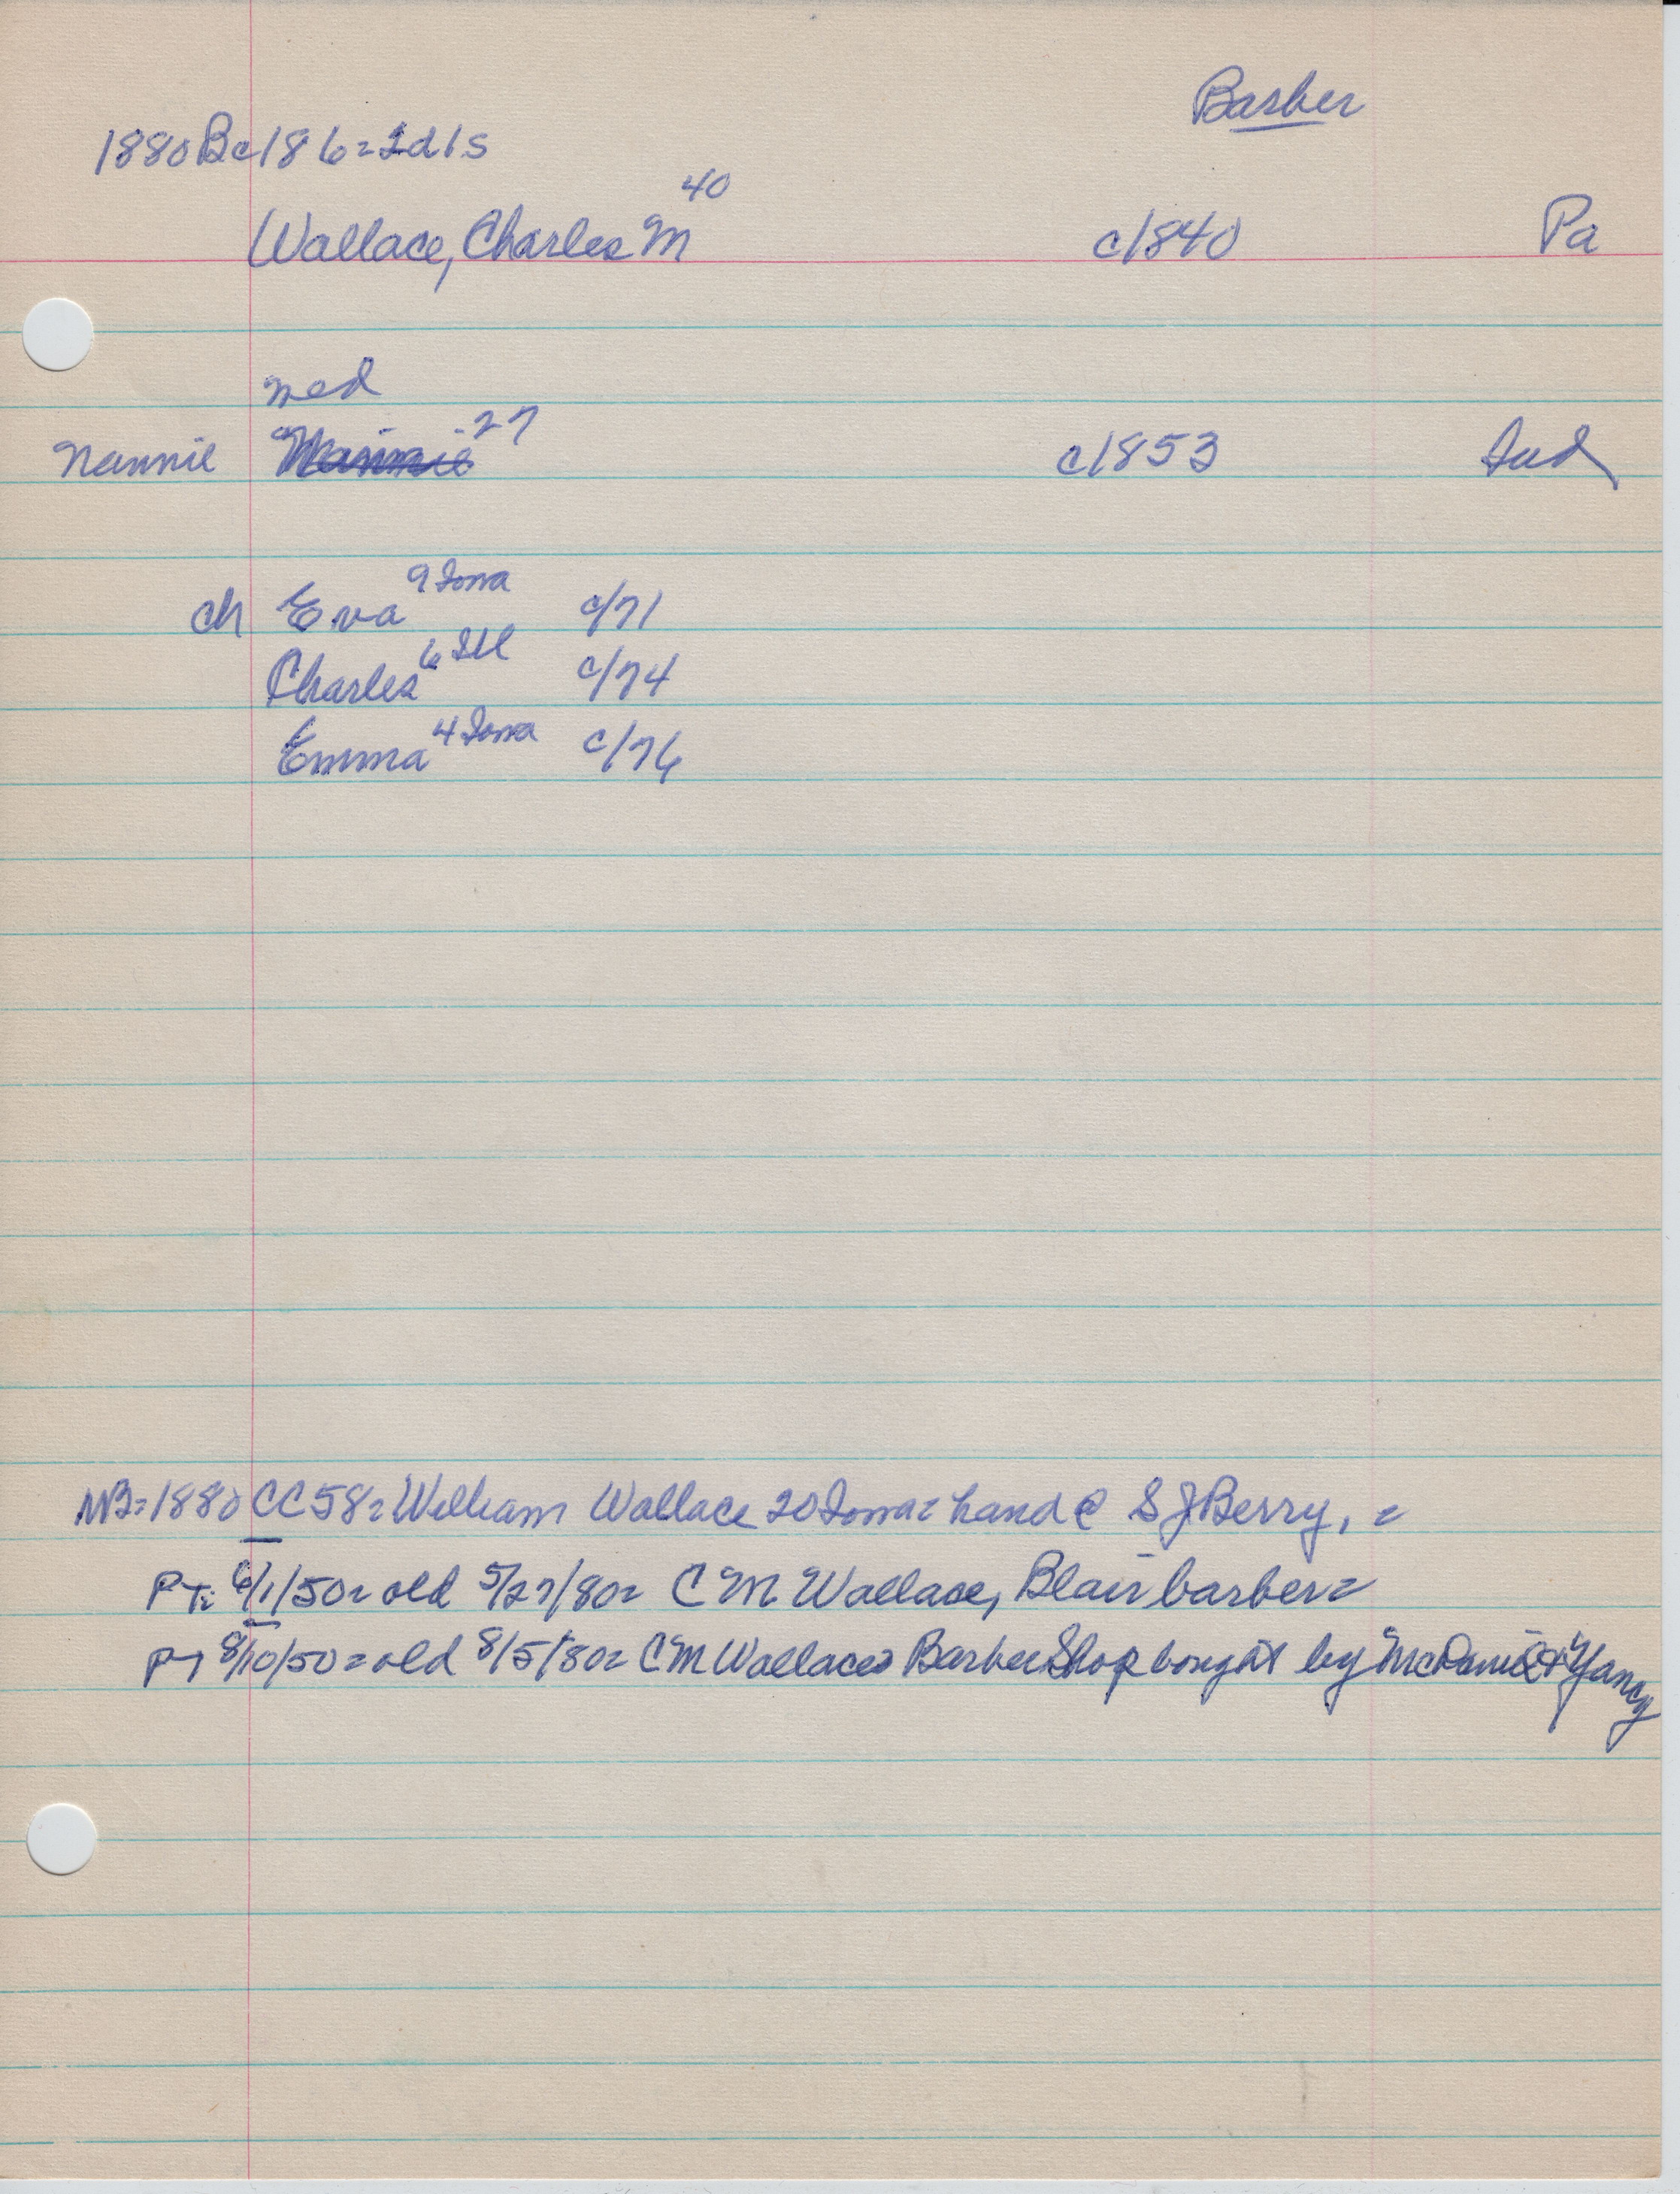 Barber
1880 Bc 186=2d1s
Wallace, Charles M 40 c1840 Pa
med
Nannie 27 c1853 Ind
ch Eva 9 Iowa c/71
Charles 6 Ill c/74
Emma 4 Iowa c/76
NB=1880 CC58=William Wallace 20 Iowa= hand @ S J Berry, =
PT= 6/1/50= old 5/27/80= C M Wallace, Blair barber=
PT 8/10/50=old 8/5/80= C M Wallaces Barber Shop bought by McDaniel + Yancy